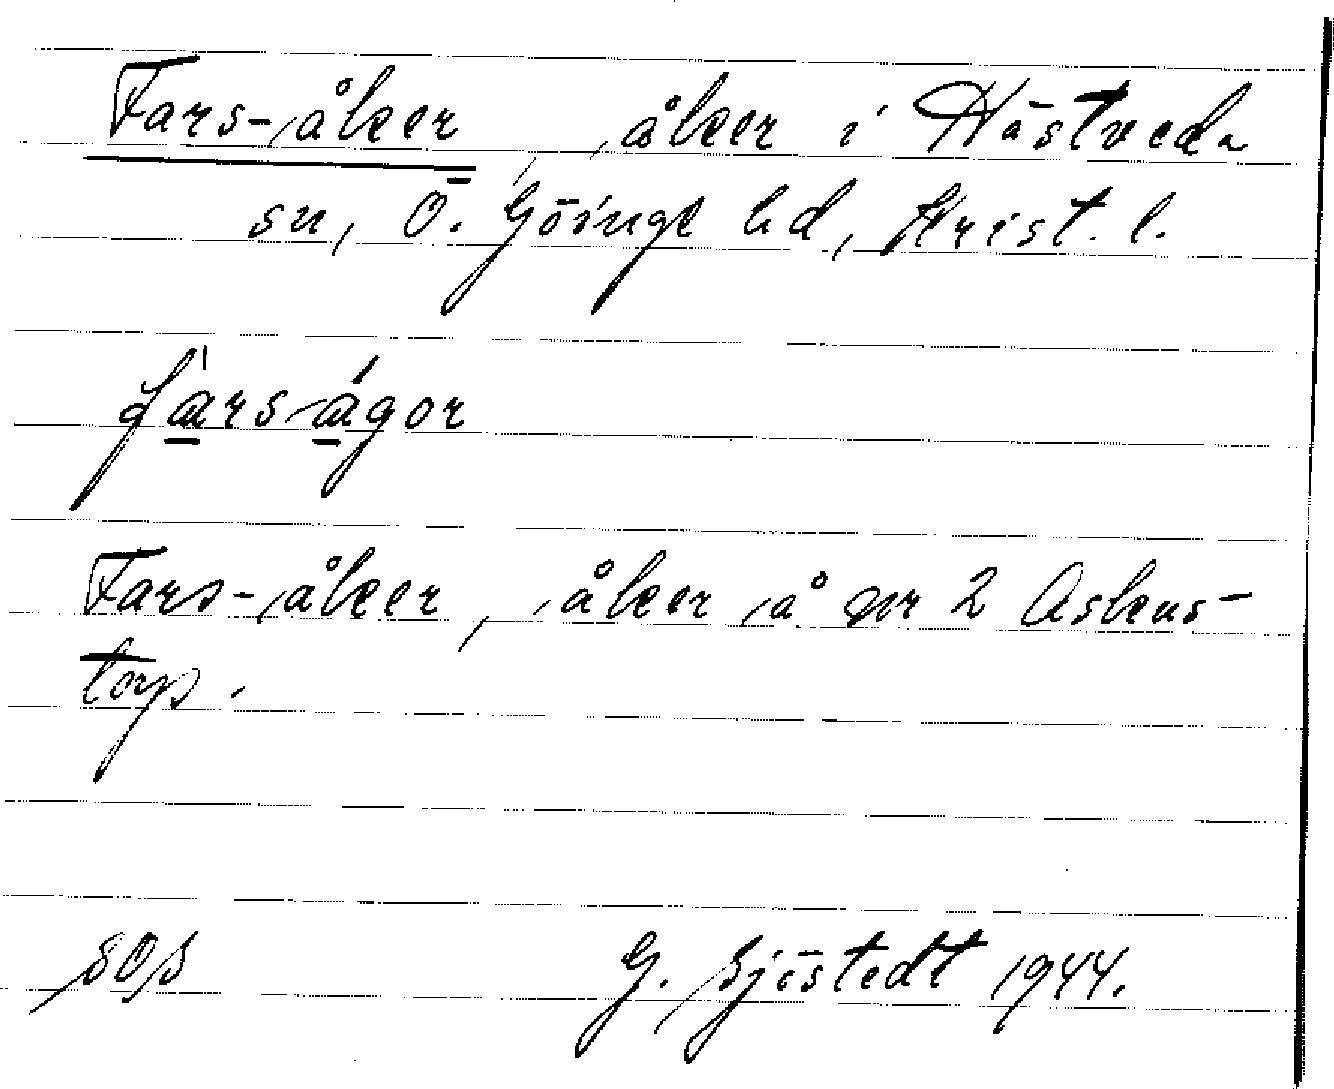 Fars-åker, åker i Hästveda
sn, Ö. Göinge hd, Krist. l.
fàrságor
Fars-åker, åker å nr 2 Askens-
torp.
SOS G. Sjöstedt 1944.